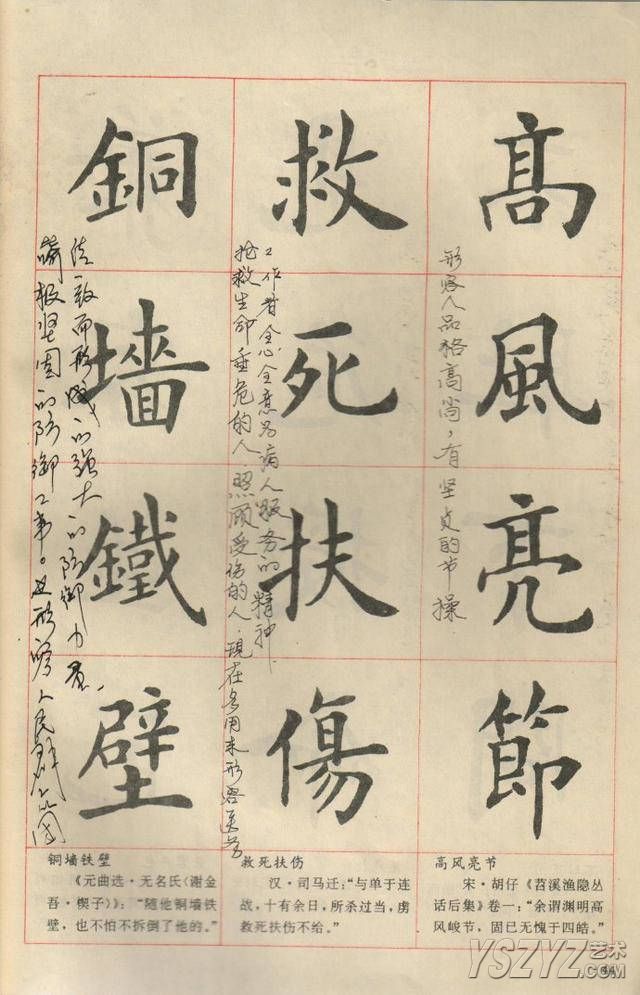 高風亮節
形容人品格高尚，有坚贞的节操
高风亮节
宋·胡仔《苕溪渔隐丛
话后集》卷一：“余谓渊明高
风峻节，固已无愧于四皓。”
救死扶傷
抢救生命垂危的人，照顾受伤的人．现在多用来形容医务
工作者全心全意为病人服务的精神
救死扶伤
汉·司马迁：“与单于连
战，十有余日，所杀过当，虏
救死扶伤不给。”
銅墻鐵壁
坚固的防御工事。也形容人民群众团
致而形成的强大的防御力量
铜墙铁壁
《元曲选·无名氏（谢金
吾·楔子）》：“随他铜墙铁
壁，也不怕不拆倒了他的。”
YSZYZ艺术
.COM